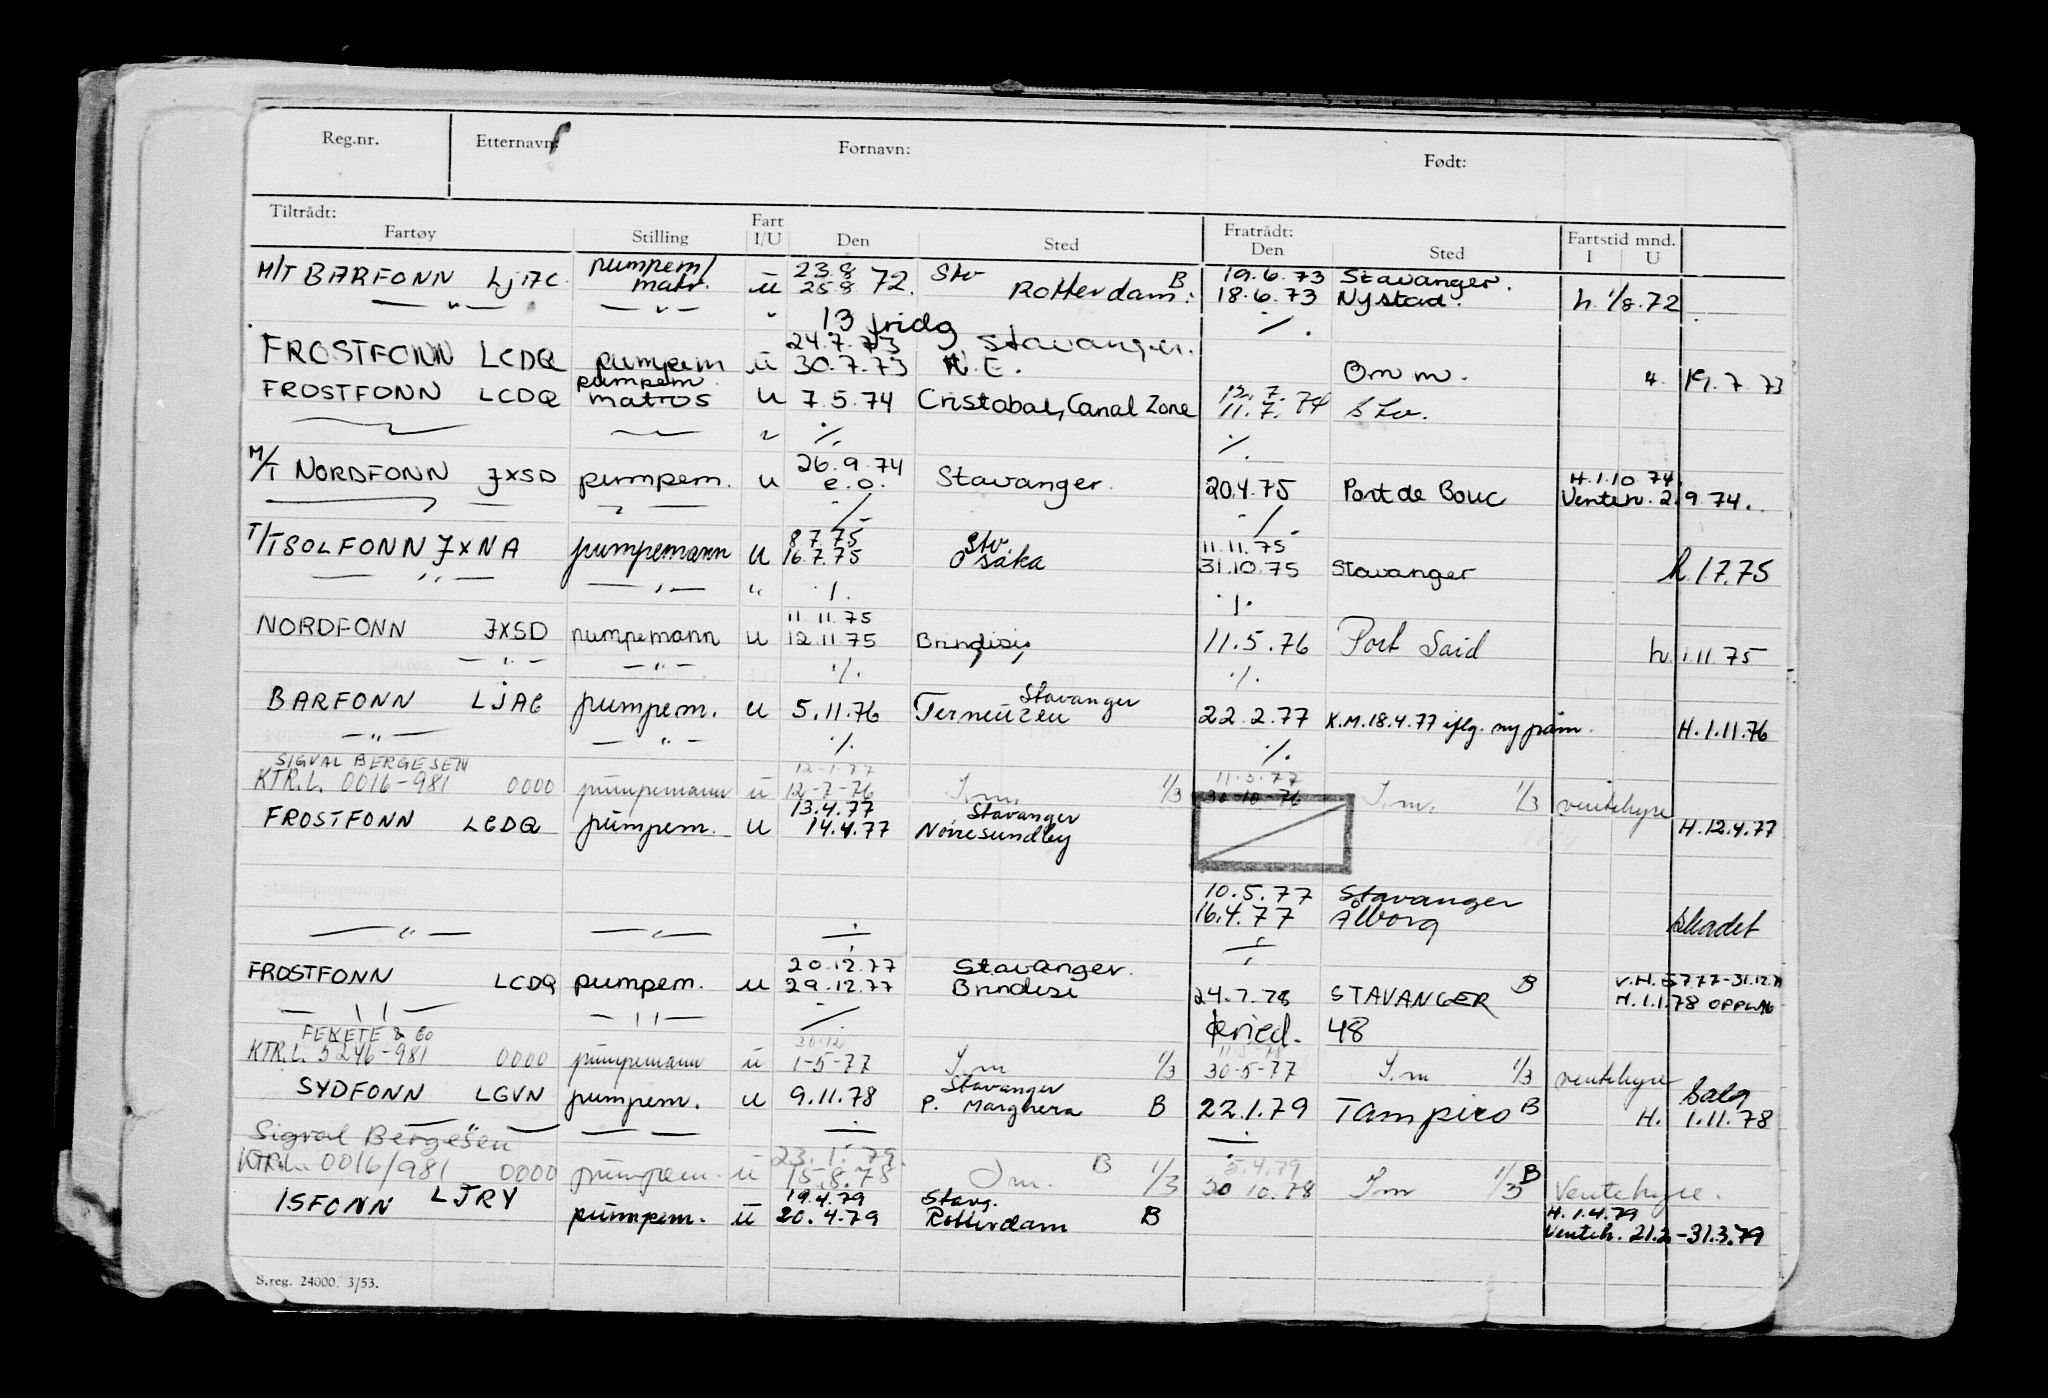 Reg.nr. Etternavn: Fornavn: Født:
Tiltrådt: Fartøy Stilling Fart I/U Den Sted Fratrådt: Den Sted Fartstid mnd. I U
pumpem/ 23.8 Stv B 19.6.73 Stavanger.
M/T BARFONN LJAC matr. u 25.8 72. Rotterdam. 18.6.73 Nystad. h. 1/8.72
— " — — " — " 13 fridg ./.
24.7.73 Stavanger.
FROSTFONN LCDQ pumpem u 30.7.73 N.E. Om m. 19.7.73
pumpem. 12.7.
FROSTFONN LCDQ matros u 7.5.74 Cristobal, Canal Zone 11.7.74 Stv.
./. ./.
26.9.74 H.1.10 74.
M/T NORDFONN JXSD pumpem. u e.o. Stavanger. 20.4.75 Port de Bouc Venteh. 2.9.74.
./. ./.
8.7.75 Stv. 11.11.75
T/T SOLFONN JXNA pumpemann u 16.7.75 Osaka 31.10.75 Stavanger h. 1.7.75
— " — — " — " ./. ./.
11.11.75
NORDFONN JXSD pumpemann u 12.11.75 Brindisi 11.5.76 Port Said h. 1.11.75
— " — — " — ./. ./.
Stavanger
BARFONN LJAG pumpem. u 5.11.76 Terneuzen 22.2.77 K.M. 18.4.77 iflg. ny påm. H.1.11.76
— " — — " — ./. ./.
SIGVAL BERGESEN 12-1-77 11-3-77
KTR.L. 0016-981 0000 pumpemann u 12-7-76 I.m. 1/3 30-10-76 I.m. 1/3 ventehyre
13.4.77 Stavanger
FROSTFONN LCDQ pumpem. u 14.4.77 Nørresundby H.12.4.77
10.5.77 Stavanger
16.4.77 Ålborg skadet
— " — — " — ./. ./.
20.12.77 Stavanger. V.H. 5.7.77-31.12.77
FROSTFONN LCDQ pumpem. u 29.12.77 Brindisi 24.7.78 STAVANGER B H.1.1.78
— " — — " — ./. 48
FEKETE & Co 20.12
KTR.L. 5246-981 0000 pumpemann u 1-5-77 I.m 1/3 30-5-77 I.m 1/3 ventehyre
Stavanger Salg
SYDFONN LGVN pumpem. u 9.11.78 P. Marghera B 22.1.79 Tampico B H. 1.11.78
— " — — — ./. ./.
Sigval Bergesen 23.1.79. 5.4.79
KTR.L. 0016/981 0000 pumpem. u 15.8.78 I.m. B 1/3 30 10.78 I.m 1/3 B Ventehyre.
19.4.79 Stavg. H. 1.4.79
ISFONN LJRY pumpem. u 20.4.79 Rotterdam B Venteh. 21.2-31.3.79
S.reg. 24000. 3/53.